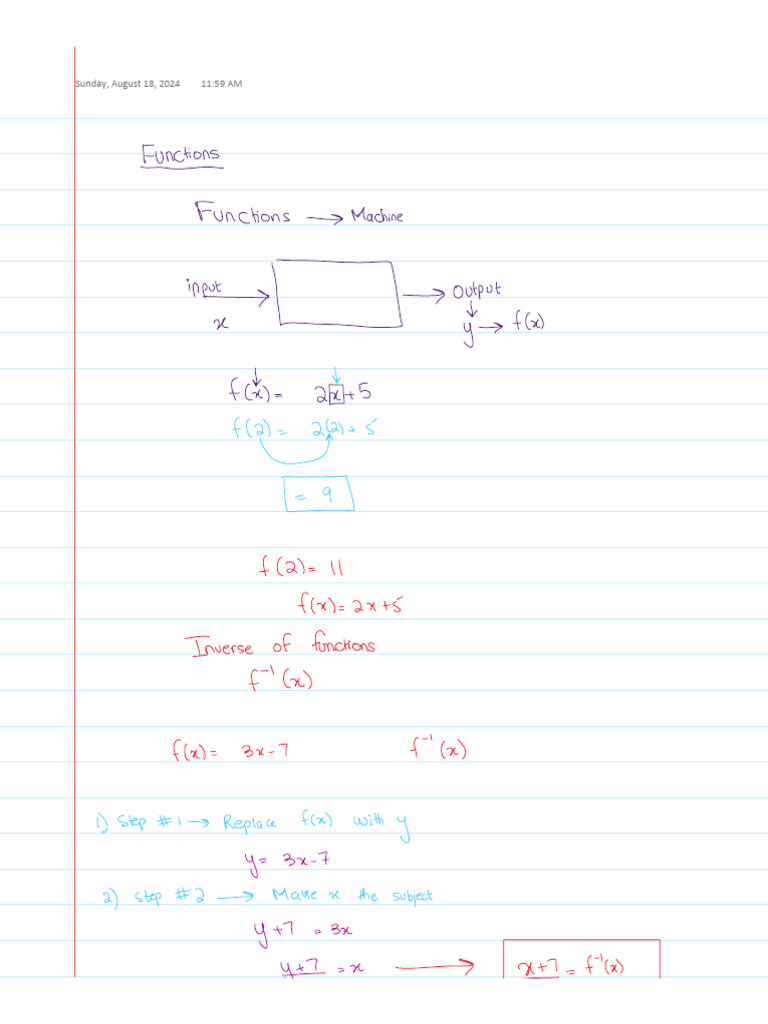 Sunday, August 18, 2024 11:59 AM
Functions
Functions → Machine
input
Output
x
y → f(x)
f(x) = 2x + 5
f(2) = 2(2) + 5
= 9
f(2) = 11
f(x) = 2x + 5
Inverse of functions
f⁻¹(x)
f(x) = 3x - 7 f⁻¹(x)
1) Step #1 → Replace f(x) with y
y = 3x - 7
2) Step #2 → Make x the subject
y + 7 = 3x
y + 7 = x → x + 7 = f⁻¹(x)